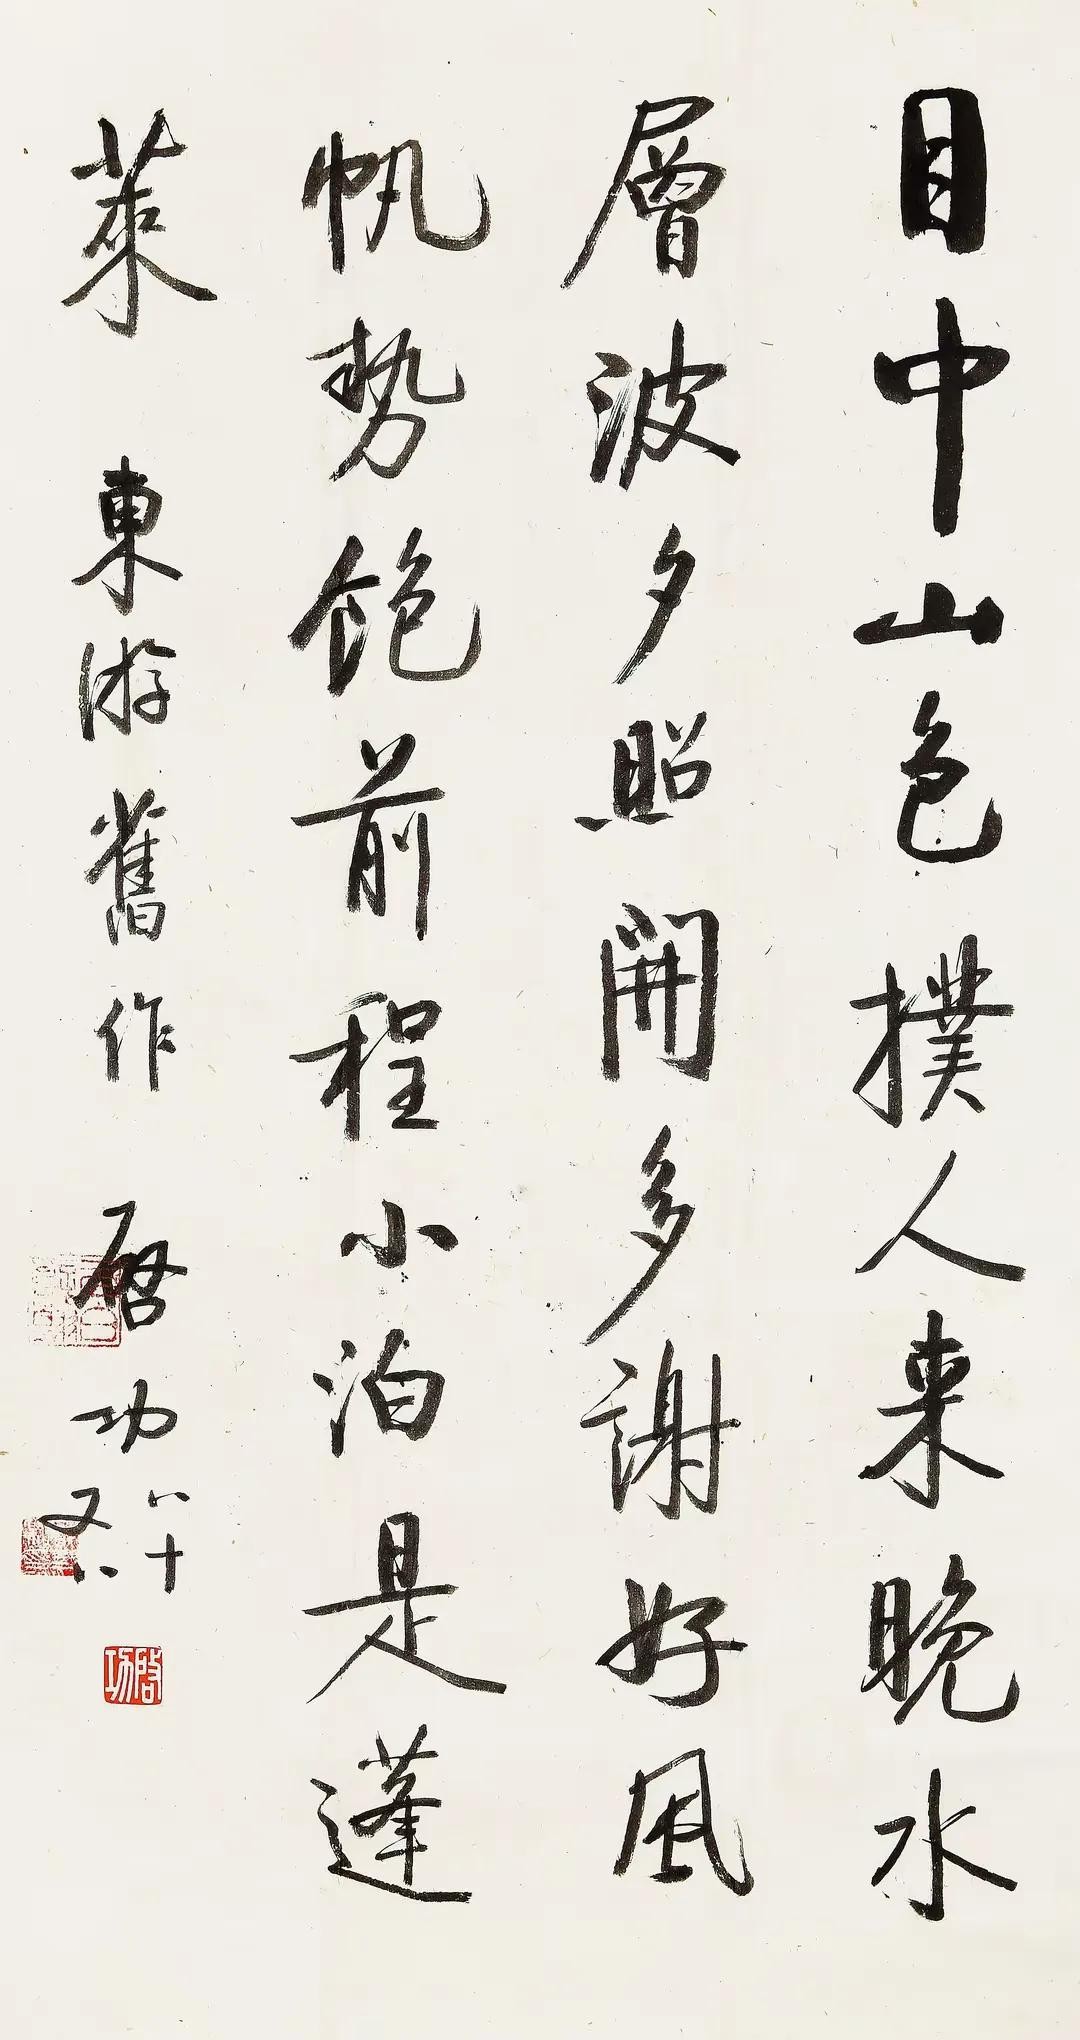 目中山色撲人来晚水
層波夕照開多謝好風
帆勢飽前程小泊是蓬
萊 東游舊作 啓功 八十又八
啟功